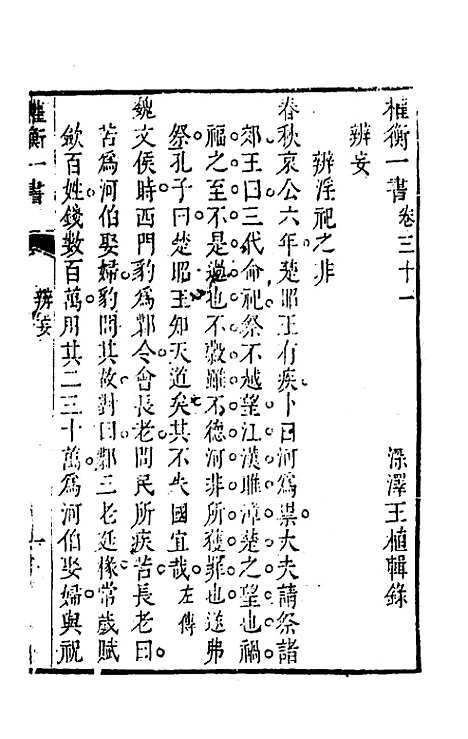 權衡一書卷三十一　深澤王植輯錄
辨妄
辨淫祀之非
春秋哀公六年楚昭王有疾卜曰河爲祟大夫請祭諸
郊王曰三代命祀祭不越望江漢雎漳楚之望也禍
福之至不是過也不榖雖不德河非所獲罪也遂弗
祭孔子曰楚昭王知天道矣其不失國宜哉左傳
魏文侯時西門豹爲鄴令會長老問民所疾苦長老曰
苦爲河伯娶婦豹問其故對曰鄴三老廷掾常歲賦
斂百姓錢數百萬用其二三十萬爲河伯娶婦與祝
權衡一書　辨妄　一